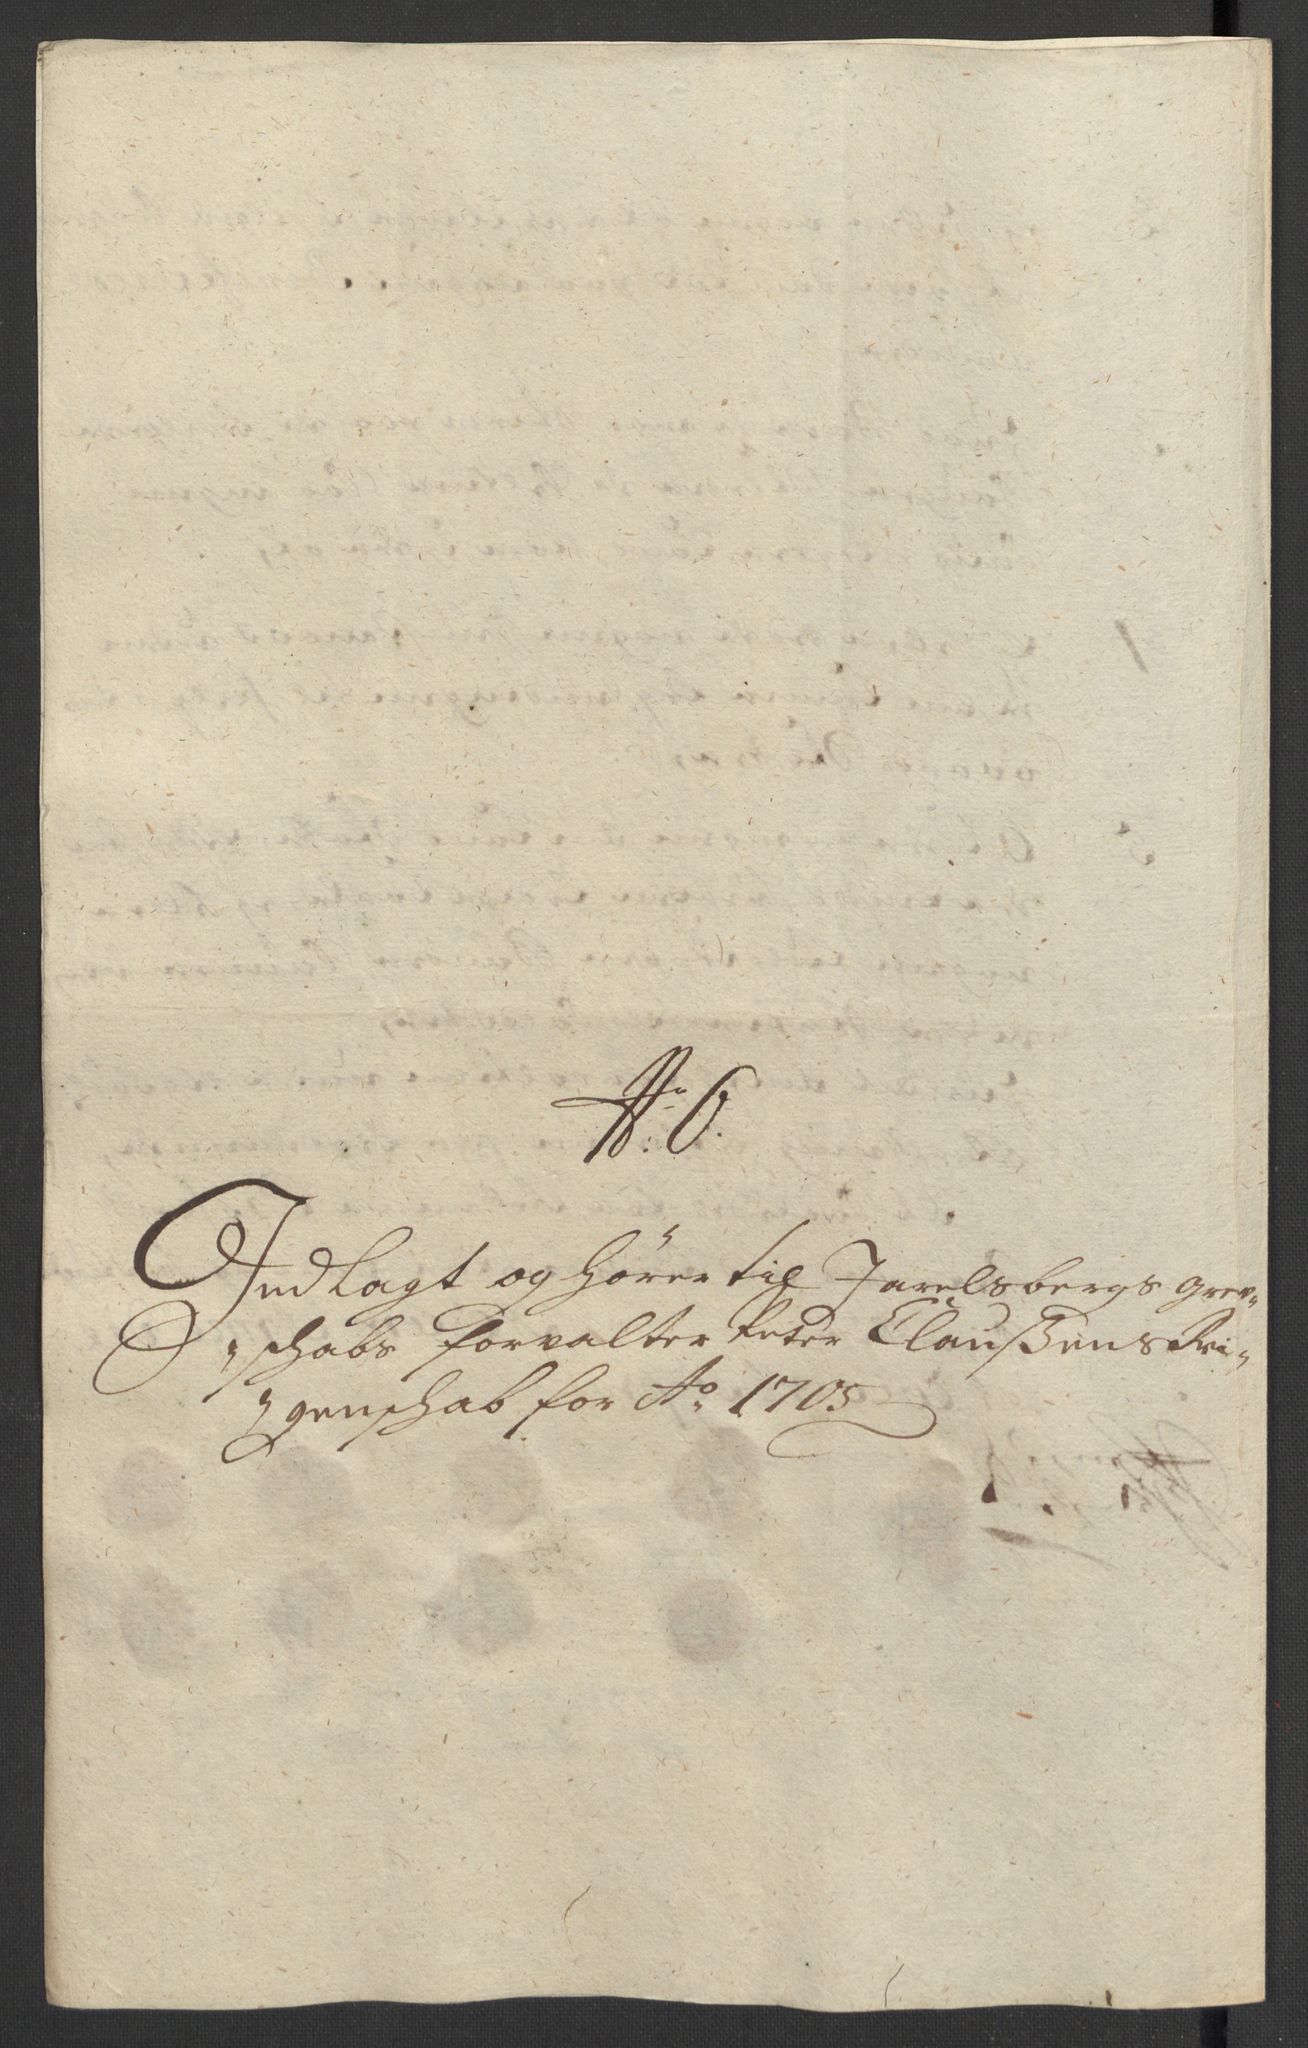 No. 6.
Indlagt og hører til Jarelsbergs Grev-
schabs Forvalter Peter Claussens Rei-
genschab for Ao. 1705